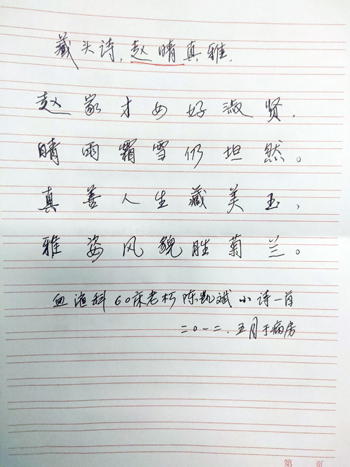 藏头诗,赵晴真雅.
赵家才女好淑贤.
晴雨霜雪仍坦然。
真善人生藏美玉、
雅姿风貌胜菊兰。
血液科60床老朽陈凯斌小诗一首
二〇一二.五月于病房
第 页